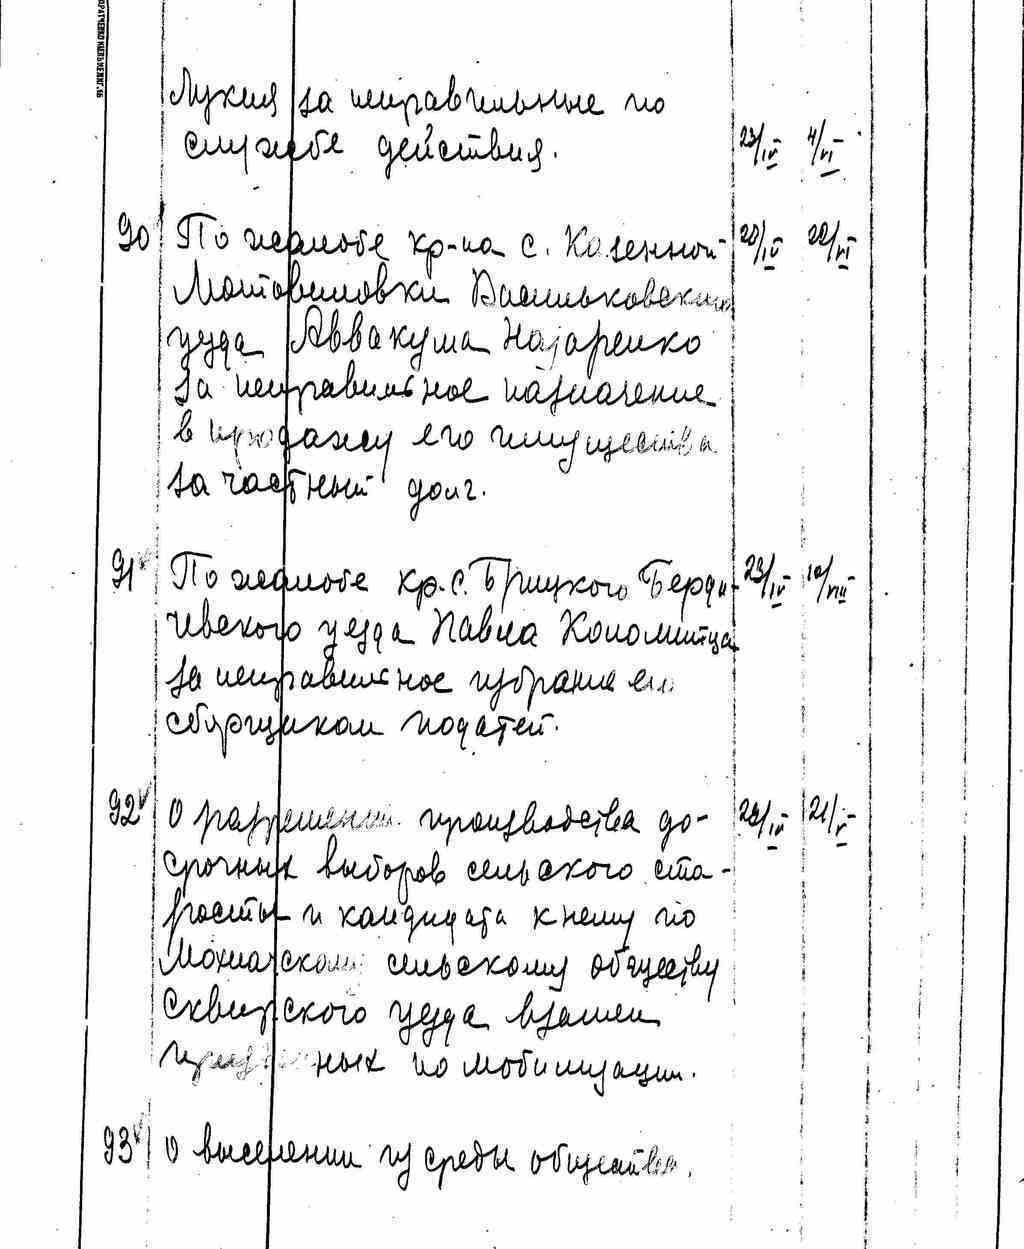 Лукия за неправильные по
службе действия. 23/IV 4/VI
90 По жалобе кр-на с. Казенной 20/IV 22/VI
Мотовиловки Васильковского
уезда Аввакума Назаренко
за неправильное назначение
в продажу его имущества
за частный долг.
91 По жалобе кр. с. Брицкого Берди- 23/IV 10/VIII
чевского уезда Павла Коломийца
за неправильное избрание его
сборщиком податей.
92 О разрешении производства до- 29/IV 21/V
срочных выборов сельского ста-
росты и кандидата к нему по
сельскому обществу
Сквирского уезда взамен
призванных по мобилизации.
93 О выселении из среды общества